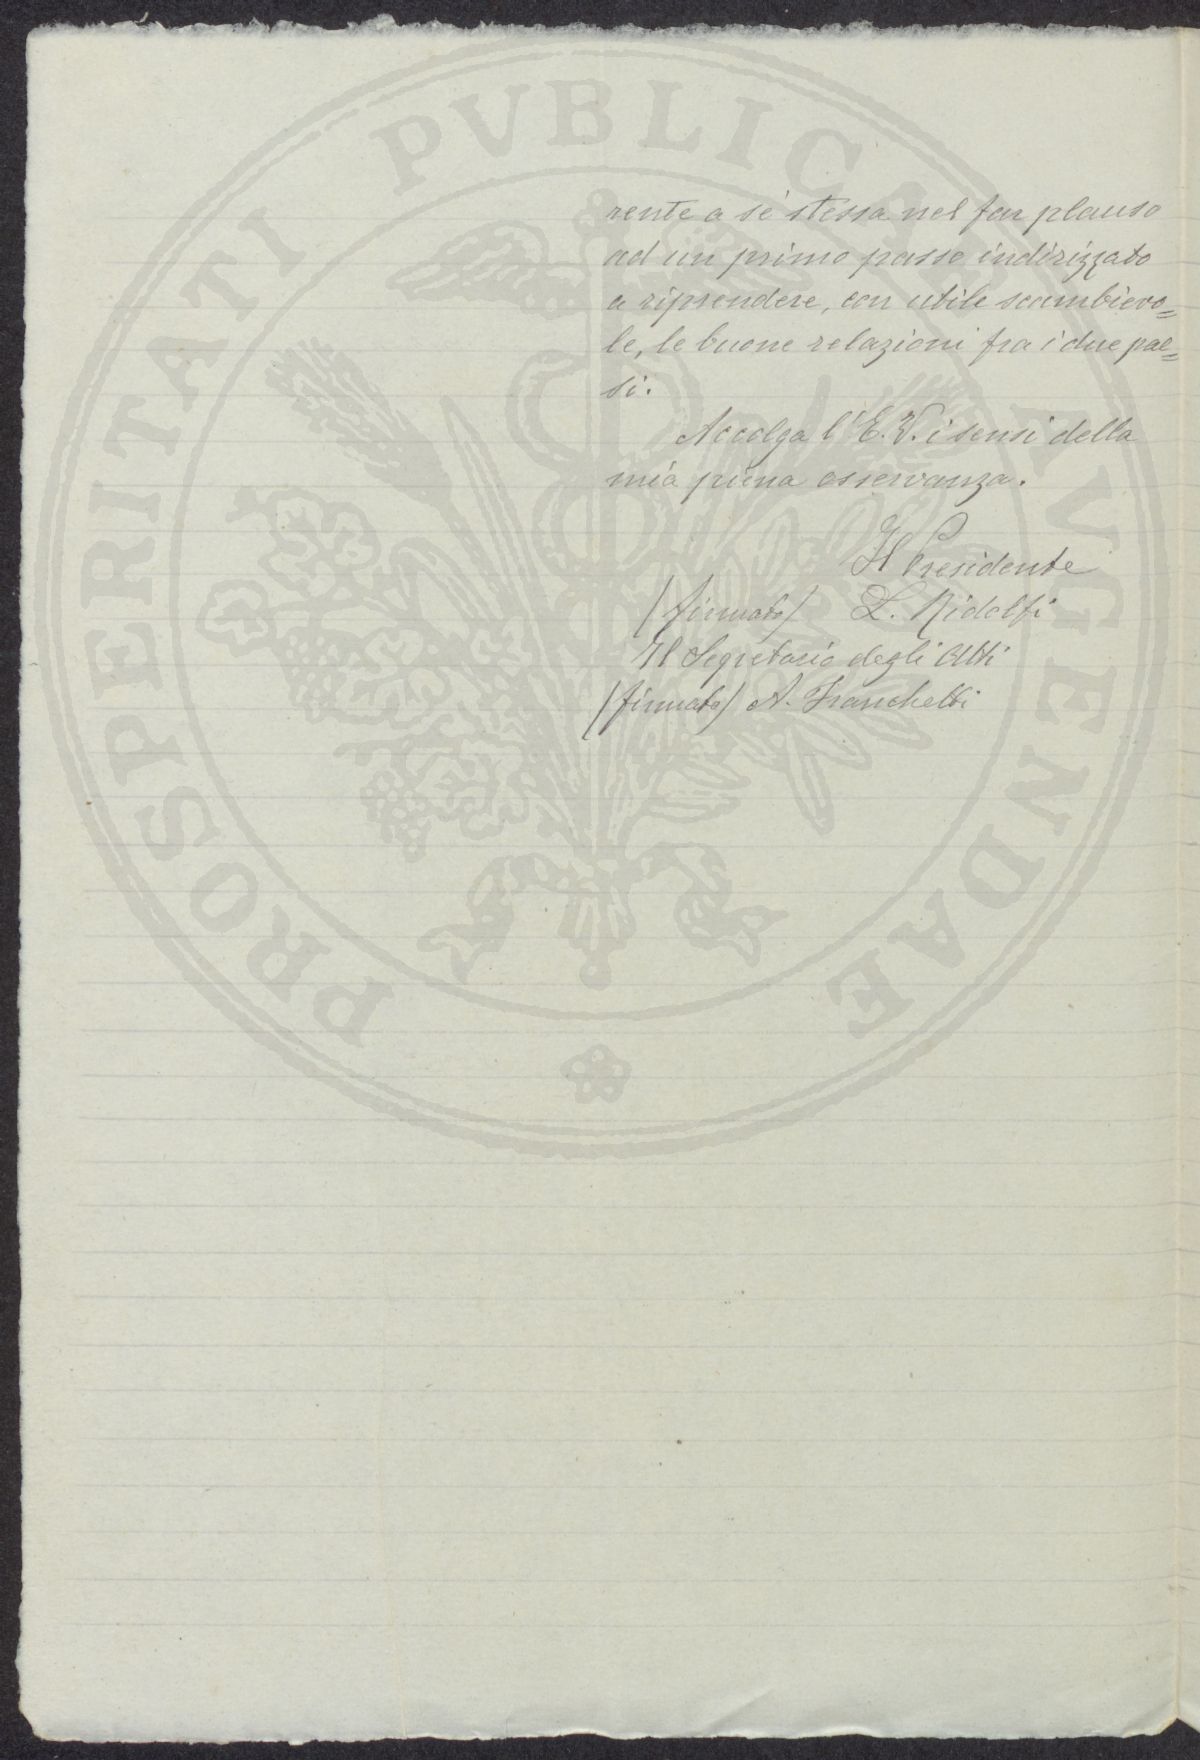 PROSPERITATI PVBLICAE AVGENDAE
rente a sè stessa nel far plauso
ad un primo passo indirizzato
a riprendere, con utile scambievo=
le, le buone relazioni fra i due pae=
si.
Accolga l'E. V. i sensi della
mia piena osservanza.
Il Presidente
(firmato) L. Ridolfi
Il Segretario degli Atti
(firmato) A. Franchetti